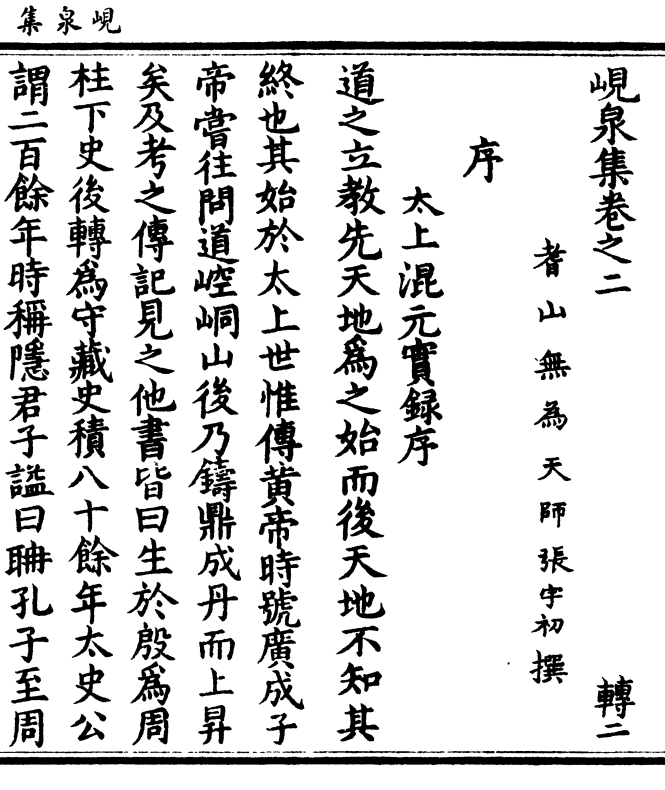 峴泉集
峴泉集卷之二 轉二
耆山無為天師張宇初撰
序
太上混元實録序
道之立教先天地爲之始而後天地不知其
終也其始於太上世惟傳黄帝時號廣成子
帝嘗往問道崆峒山後乃鑄鼎成丹而上昇
矣及考之傳記見之他書皆曰生於殷爲周
柱下史後轉爲守藏史積八十餘年太史公
謂二百餘年時稱隱君子謚曰聃孔子至周